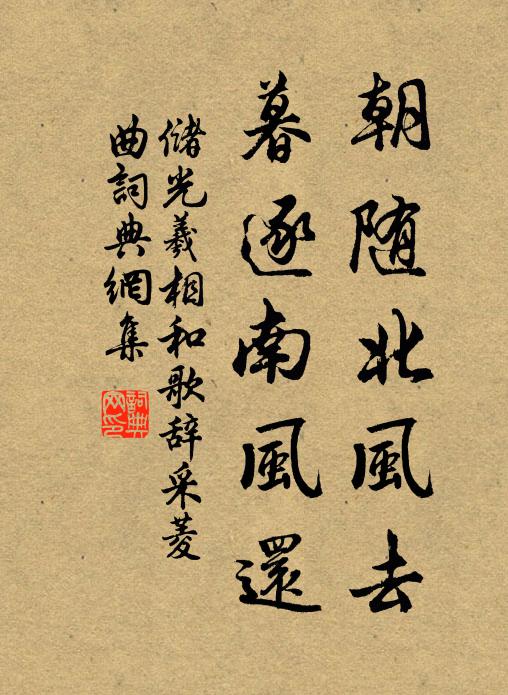 朝随北風去
暮逐南風還
儲光羲相和歌辞采菱
曲詞典網集
詞典
网印